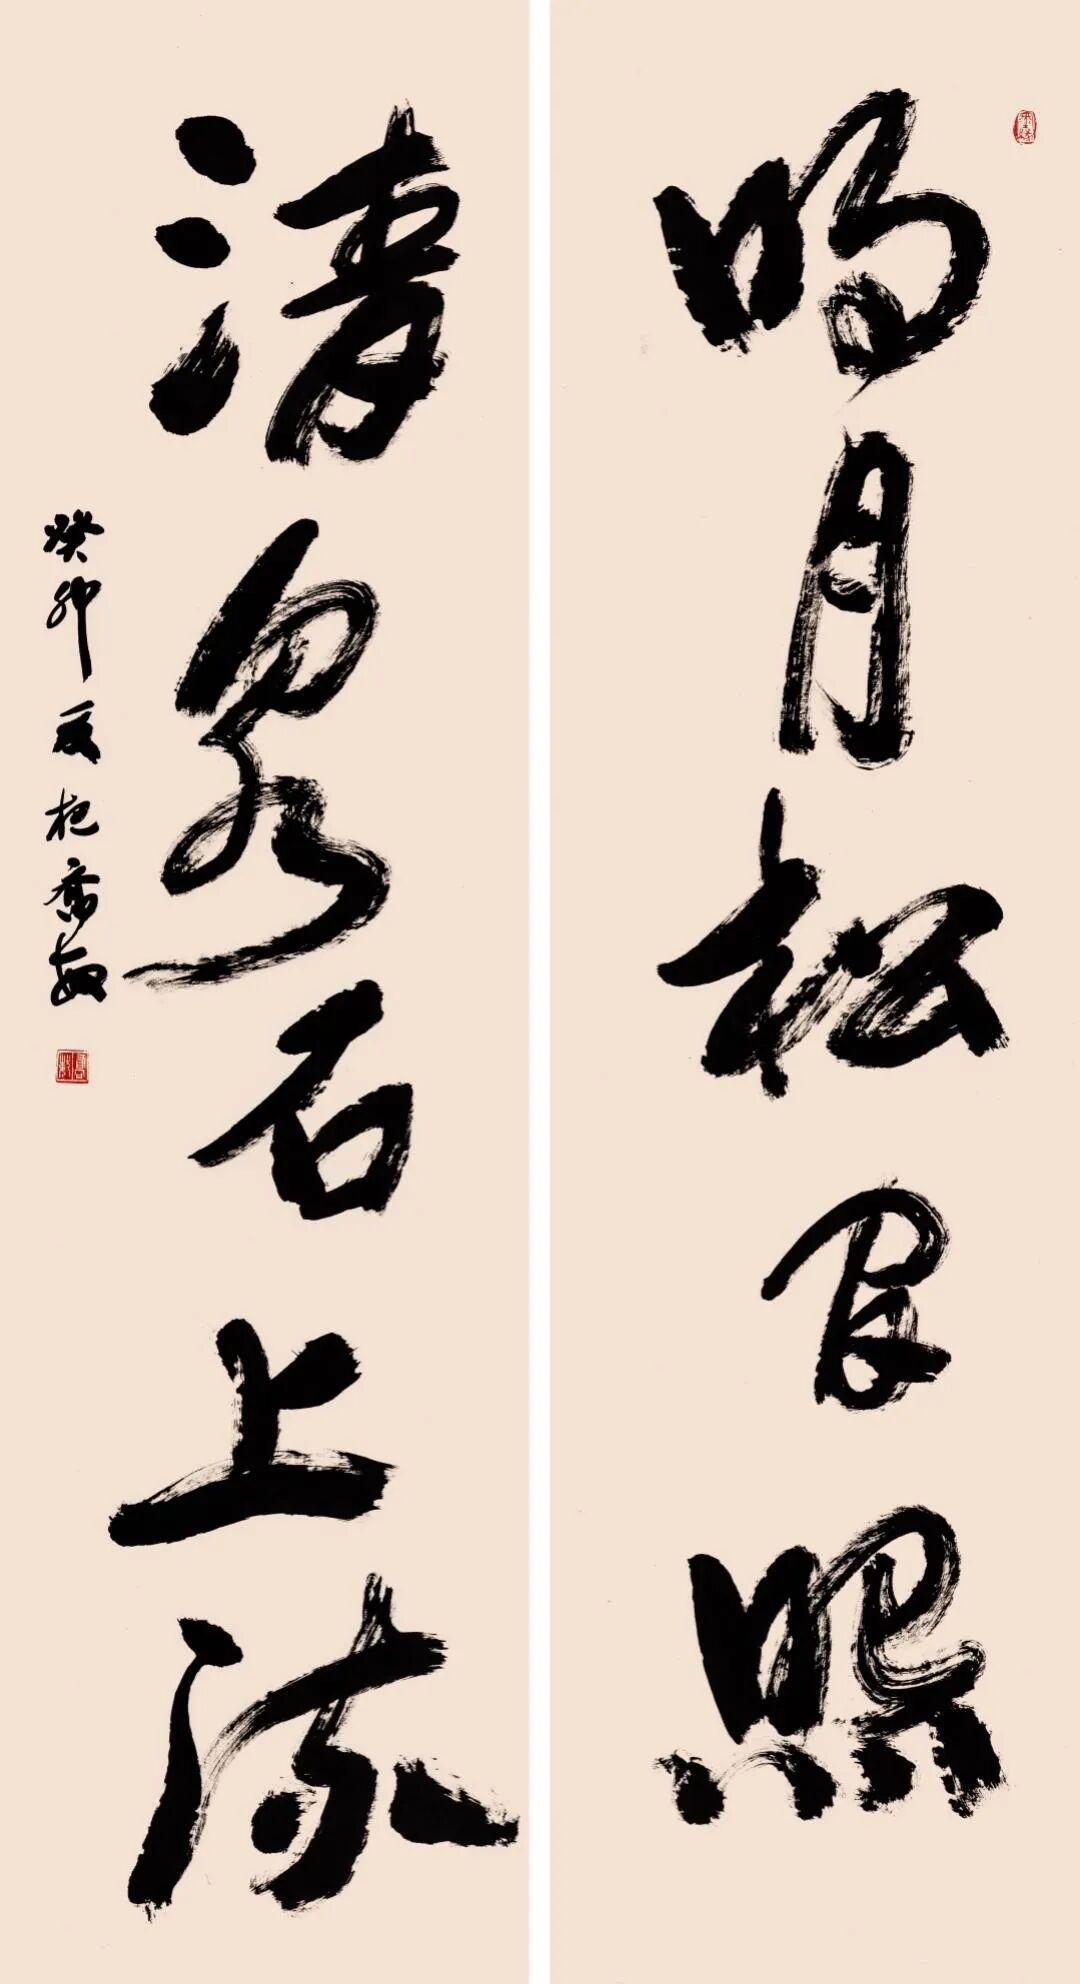 明月松间照
清泉石上流
癸卯夏杞乔敏